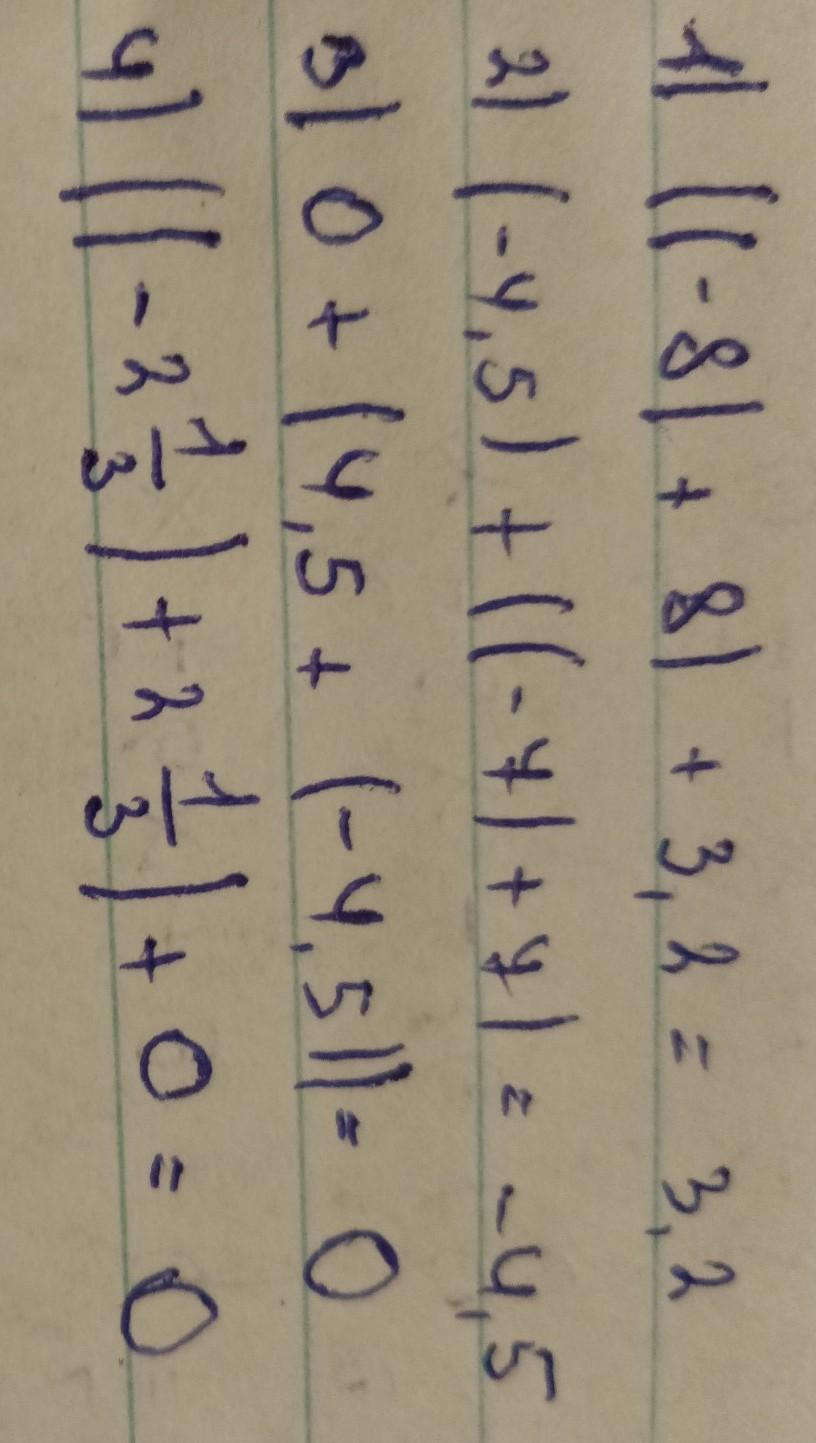 1) ((-8) + 8) + 3,2 = 3,2
2) (-4,5) + ((-4) + 4) = -4,5
3) 0 + (4,5 + (-4,5)) = 0
4) ((-2 1/3) + 2 1/3) + 0 = 0